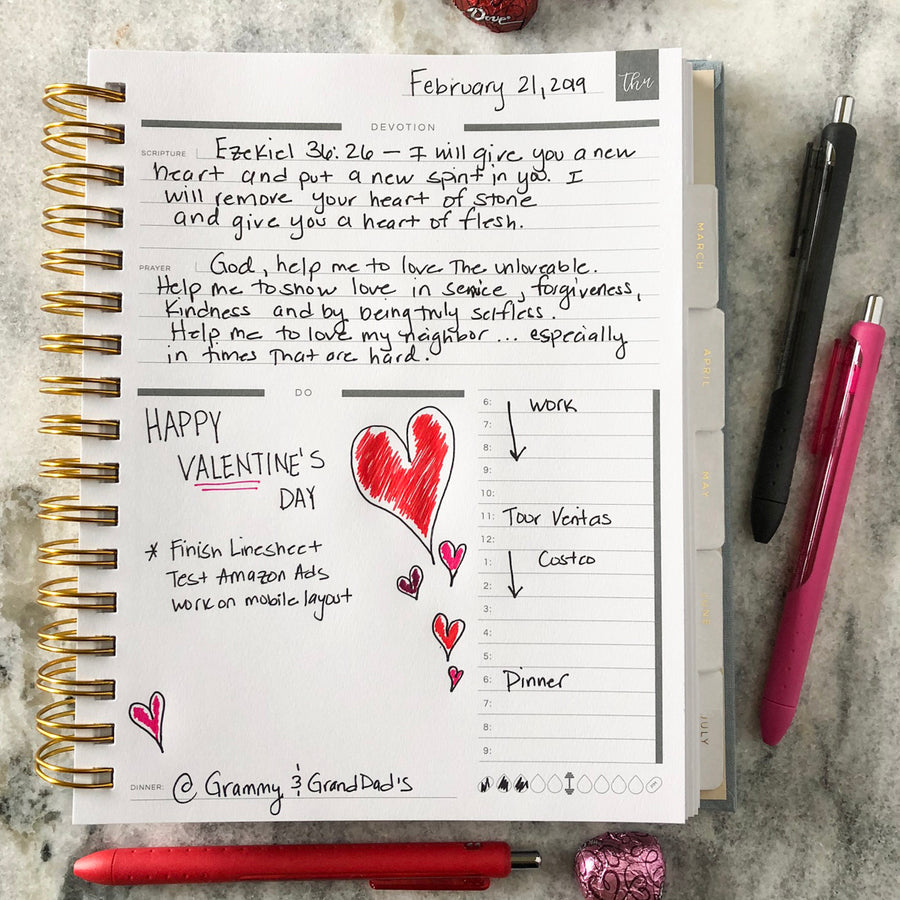 Dove
February 21, 2019
thu
DEVOTION
SCRIPTURE Ezekiel 36:26 — I will give you a new
heart and put a new spirit in you. I
will remove your heart of stone
and give you a heart of flesh.
PRAYER God, help me to love the unloveable.
Help me to show love in service, forgiveness,
Kindness and by being truly selfless.
Help me to love my neighbor ... especially
in times that are hard.
DO
HAPPY
VALENTINE'S
DAY
* Finish Linesheet
Test Amazon Ads
work on mobile layout
6: work
7:
8:
9:
10:
11: Tour Veritas
12:
1: Costco
2:
3:
4:
5:
6: Dinner
7:
8:
9:
DINNER: @ Grammy & GrandDad's
MARCH
APRIL
MAY
JUNE
JULY